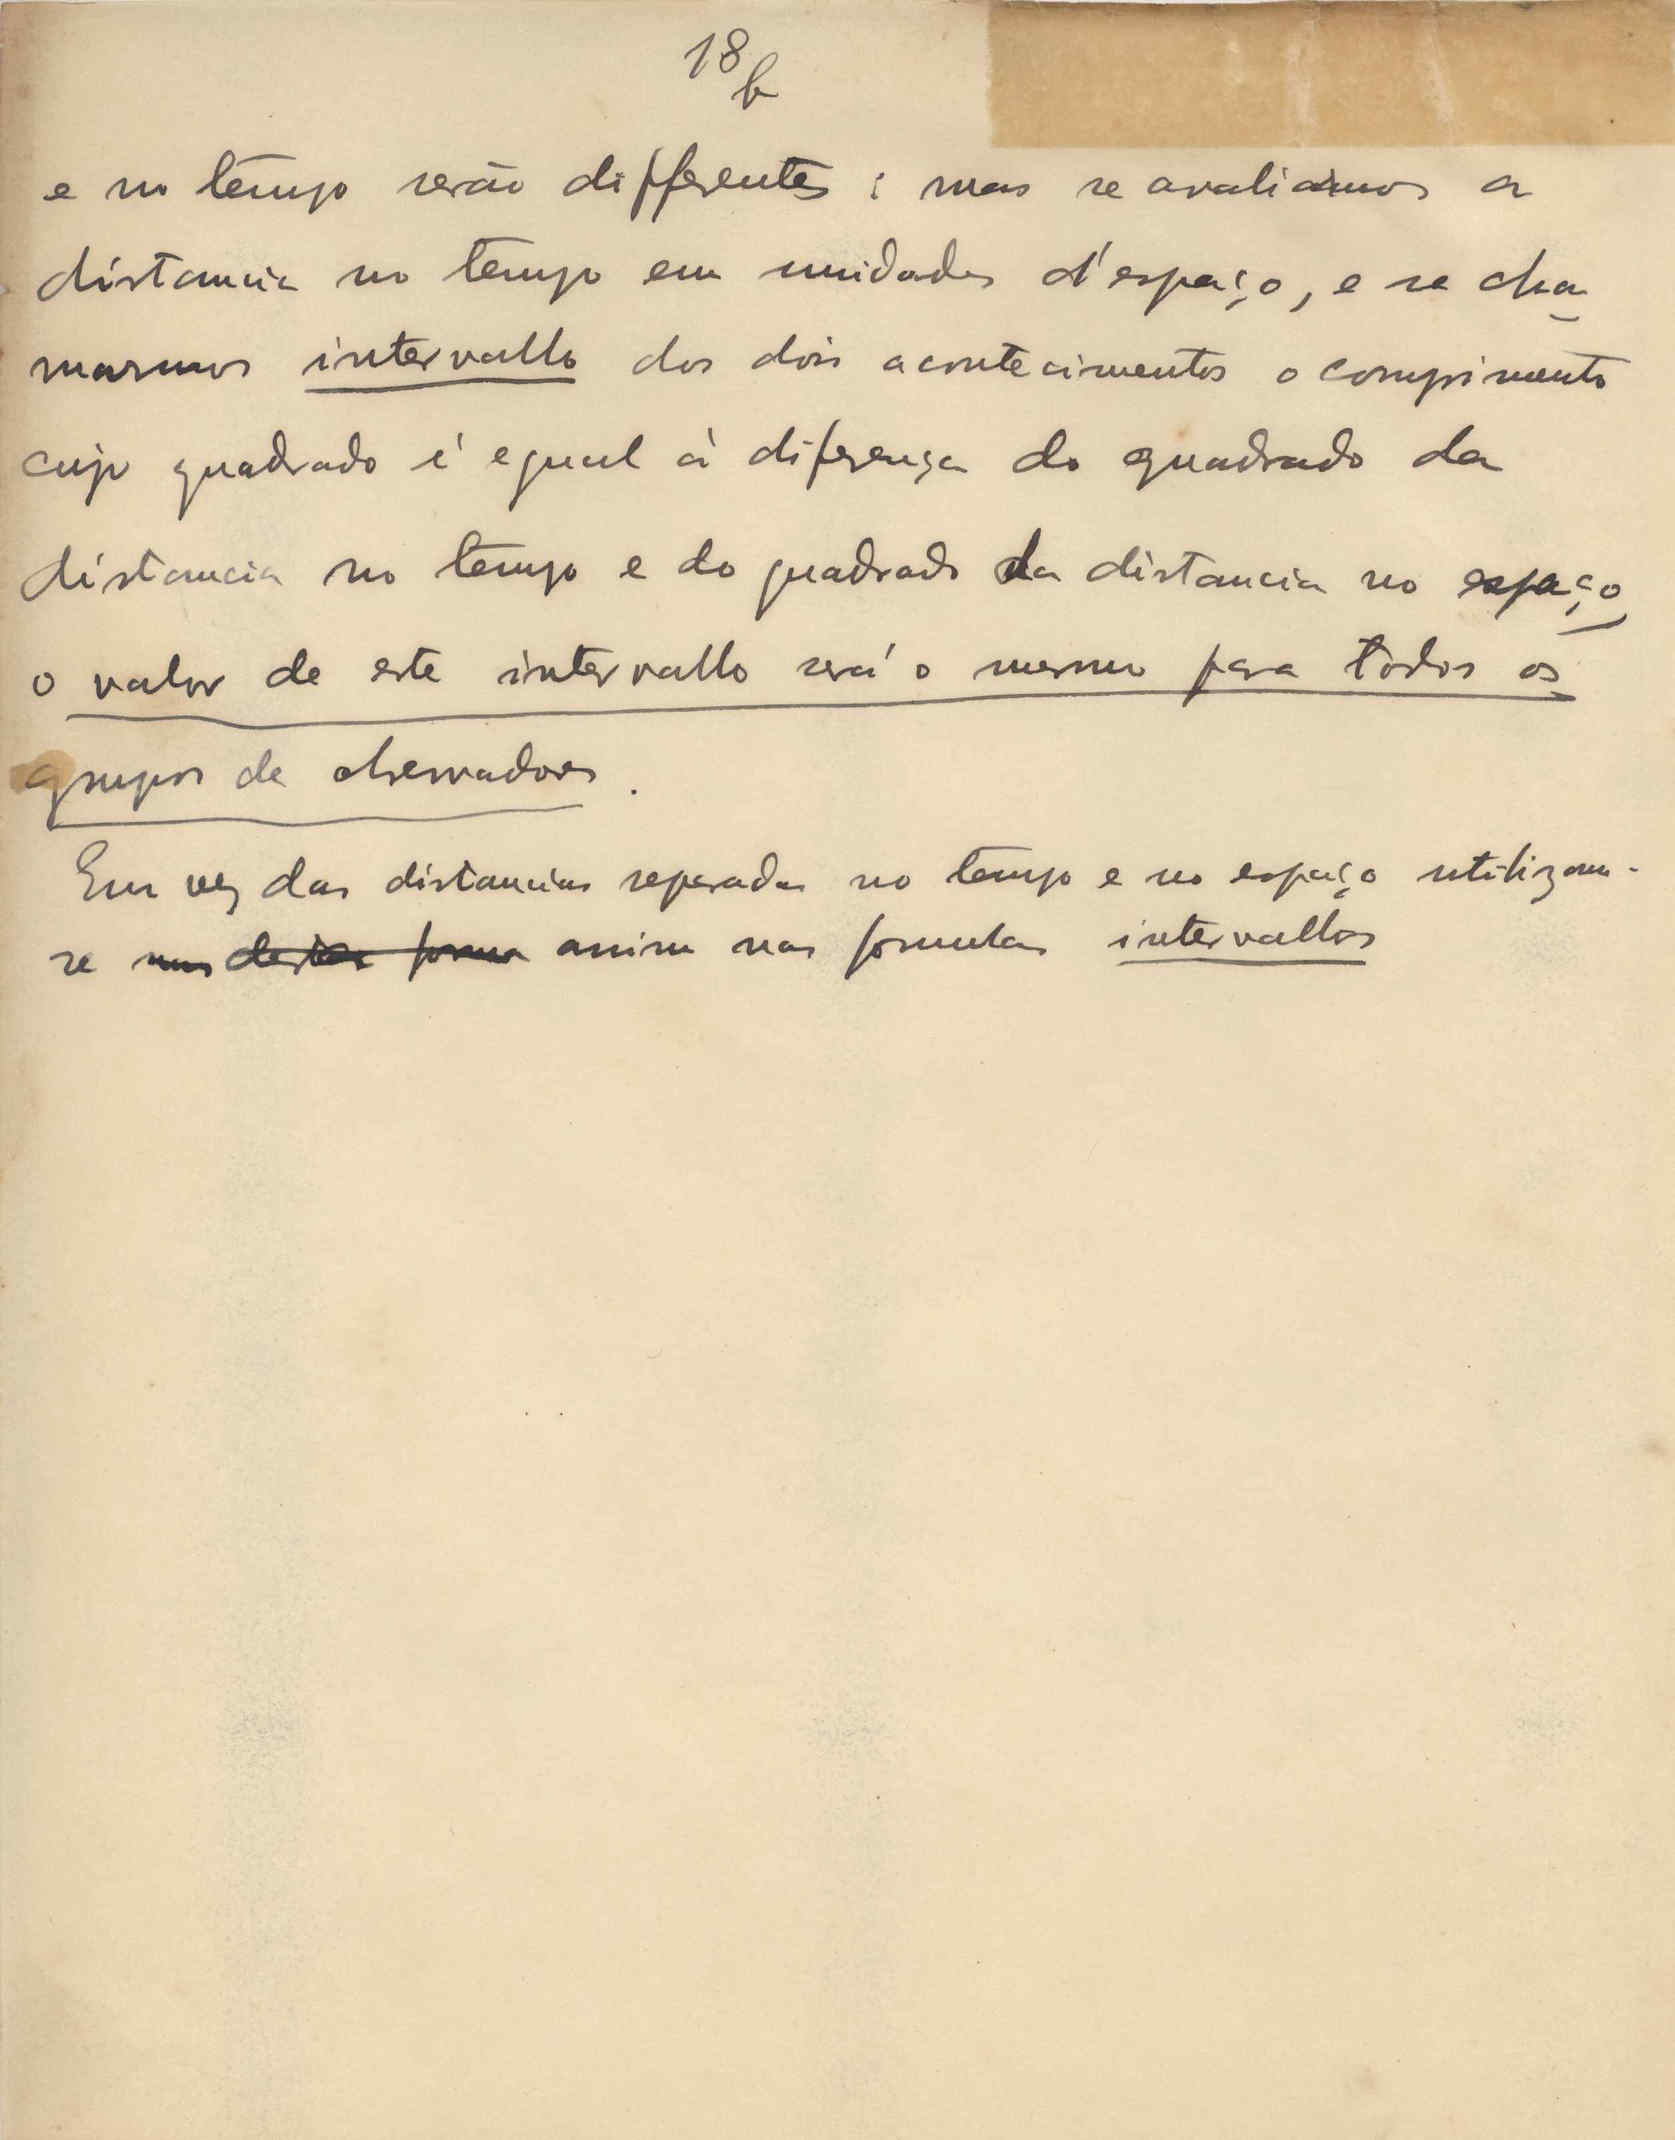 18
b
e no tempo serão differentes ; mas se avaliamos a
distancia no tempo em unidades d'espaço, e se cha
marmos intervallo dos dois acontecimentos o comprimento
cujo quadrado é egual á diferença do quadrado da
distancia no tempo e do quadrado da distancia no espaço
o valor de este intervallo será o mesmo para todos os
grupos de observadores.
Em vez das distancias separadas no tempo e no espaço utilizam-
se assim nas formulas intervallos